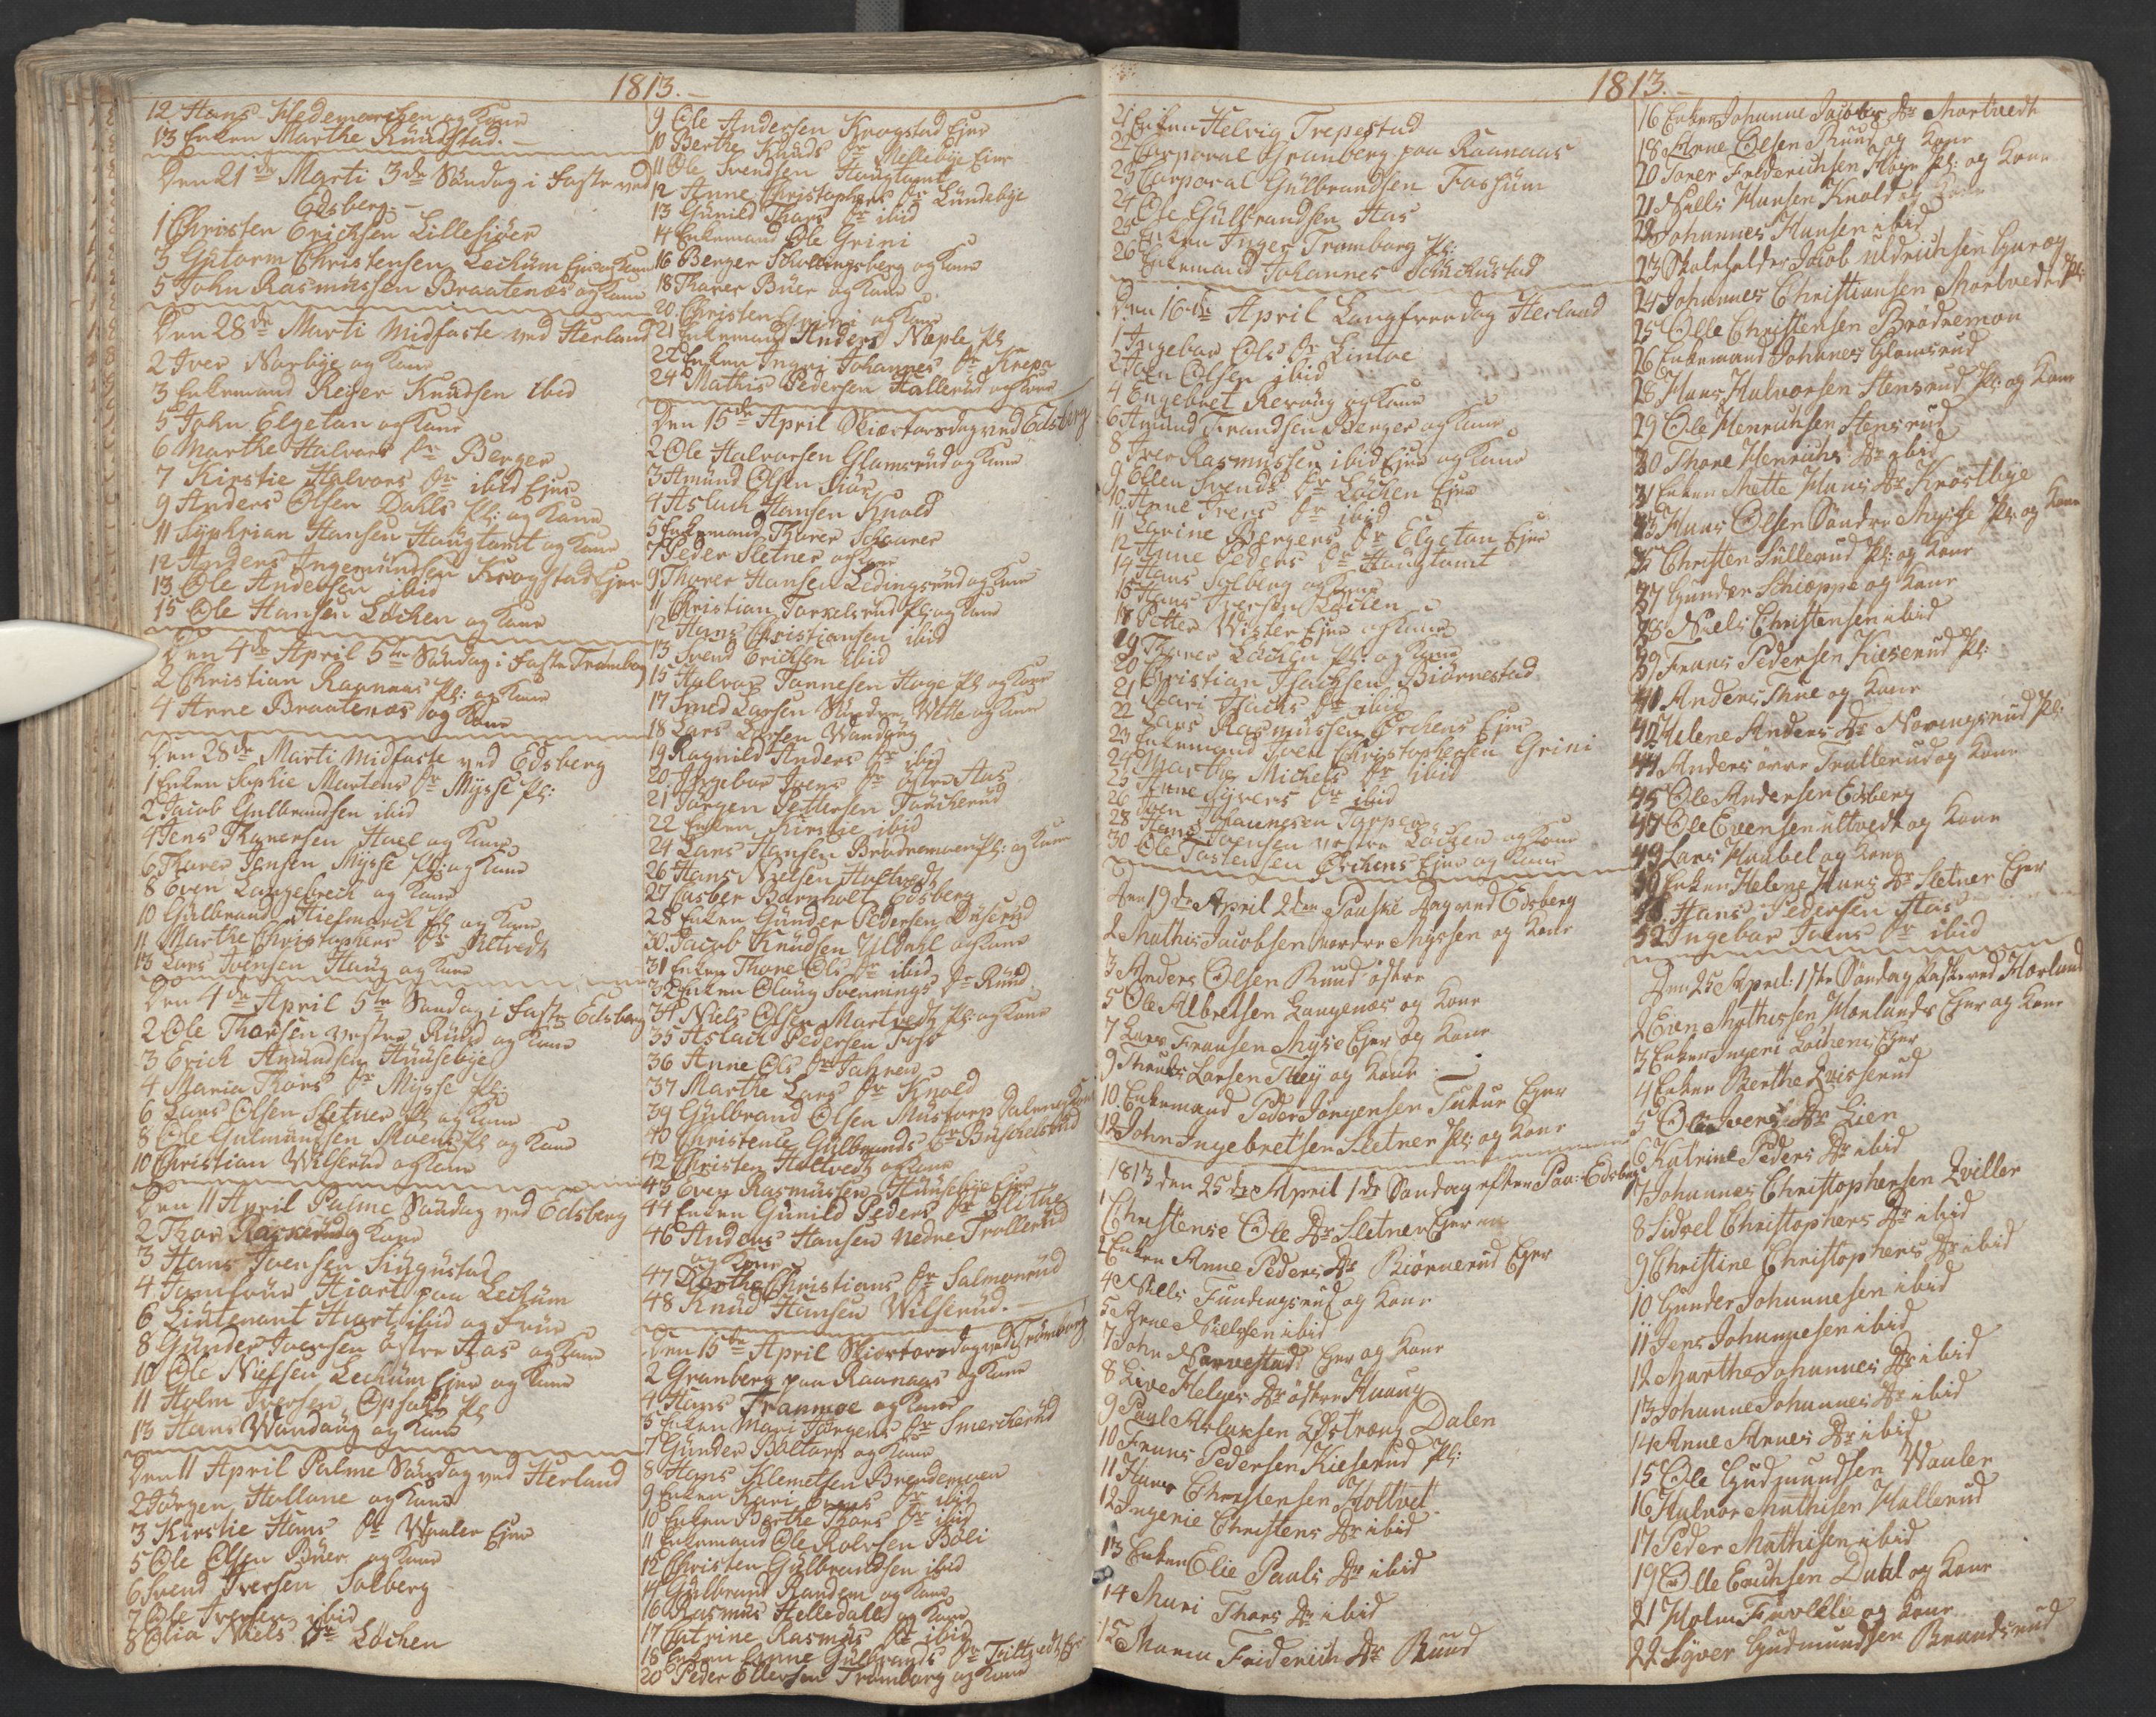 1813.
12 Hans Hedemarchen og Kone
13 Enken Marthe Ruudstad.
Den 21de Marti 3de Söndag i Faste ved
Edsberg.
1 Christen Ericksen Lillesiöer
3 Gutorm Christensen Leckum Eier og Kone
5 John Rasmussen Braatenæs og Kone
Den 28de Marti Midfaste ved Herland
2 Iver Narbye og Kone
3 Enkemand Reyer Knudsen ibid
5 John Elgetan og Kone
6 Marthe Halvors Dr Berger
7 Kirstie Halvors Dr ibid Eier
9 Anders Olsen Dahls Pl: og Kone
11 Syphrian Hansen Haugtomt og Kone
12 Anders Ingemundsen Krogstad Eier
13 Ole Andersen ibid
15 Ole Hansen Löchen og Kone
Den 4de April 5te Söndag i Faste Tromborg
2 Christian Raanaas Pl: og Kone
4 Arne Braatenæs og Kone
Den 28de Marti Midfaste ved Edsberg
1 Enken Sophie Martens Dr Mysse Pl:
2 Jacob Gulbrandsen ibid
4 Jens Thorersen Hael og Kone
6 Thorer Jensen Mysse Pl: og Kone
8 Even Langebrech og Kone
10 Gulbrand Stiefmarck Pl og Kone
11 Marthe Christophers Dr
13 Lars Joensen Haug og Kone
Den 4de April 5te Söndag i Faste Edsberg
2 Ole Thorsen vestre Ruud og Kone
3 Erick Amundsen Huusebye
4 Maria Thors Dr Mysse Pl:
6 Lars Olsen Sletner Pl og Kone
8 Ole Gulmundsen Moens Pl og Kone
10 Christian Wilserud og Kone
Den 11 April Palme Söndag ved Edsberg
2 Thor og Kone
3 Hans Joensen Sikgustad
4 Jomfrue Hiort paa Leckum
6 Lieutenant Hiort ibid og Frue
8 Gunder Joensen östre Aas og Kone
10 Ole Nielsen Leckum Eier og Kone
11 Holm Iversen Opsahl Pl
13 Hans Wandaug og Kone
Den 11 April Palme Söndag ved Herland
2 Jörgen Hallone og Kone
3 Kirstie Hans Dr Waaler Eier
5 Ole Olsen Buer og Kone
6 Svend Iversen Solberg
7 Ole Iversen ibid
8 Olia Niels Dr Löchen
9 Ole Andersen Krogstad Eier
10 Berthe Knuds Dr Mellebye Eier
11 Ole Svendsen Haugtomt
12 Anne Christophers Dr Lundebye
13 Gunild Thors Dr ibid
14 Enkemand Ole Grini
16 Berger Schollingsberg og Kone
18 Thorer Buer og Kone
20 Christen Grini og Kone
21 Enkemand Anders Næple Pl
22 Enken Ingri Johannes Dr Krepa
24 Mathis Pedersen Hallerud og Kone
Den 15de April Skiærtorsdag ved Edsberg
2 Ole Halvorsen Glamsrud og Kone
3 Amund Olsen Siör
4 Aslach Hansen Knold
5 Enkemand Thorer Schaarer
7 Peder Sletner og Kone
9 Thorer Hansen Ledingsrud og Kone
11 Christian Torkelsrud Pl: og Kone
12 Hans Christiansen ibid
13 Svend Ericksen ibid
15 Halvor Tonnesen Hage Pl og Kone
17 Smed Larsen Söndre Wette og Kone
18 Lars Larsen Wandaug
19 Ragnild Anders Dr ibid
20 Ingebor Ivers Dr östre Aas
21 Jörgen Pettersen Toscherud
22 Enken Kirstie ibid
24 Lars Hansen Brödremoen Pl: og Kone
26 Hans Nielsen Holtvedt
27 Casber Barnholt Edsberg
28 Enken Gunder Pedersen Buserud
30 Jacob Knudsen Uldahl og Kone
31 Enken Thore Ols Dr ibid
32 Enken Olaug Svennings Dr Ruud
34 Niels Olsen Martvedt Pl: og Kone
35 Aslach Pedersen Foss
36 Anne Ols Dr Jahren
37 Marthe Lars Dr Knold
39 Gulbrand Olsen Mustorp Dalene og Kone
40 Christence Gulbrands Dr Buschelsrud
42 Christen Holtvedt og Kone
43 Even Rasmussen Huusebye Eier
44 Enken Gunild Peders Dr Slitue
46 Anders Hansen Nedre Trollerud
og Kone
47 Dorthe Christians Dr Salmonrud
48 Knud Hansen Wilserud.
Den 15de April Skiærtorsdag ved Tromborg
2 Granberg paa Raanaas og Kone
4 Hans Tranmoe og Kone
5 Enken Mari Jörgens Dr Smercherud
7 Gunder Boltorp og Kone
8 Hans Klemetsen Brendemoen
9 Enken Kari Dr ibid
10 Enken Berthe Thors Dr ibid
11 Enkemand Ole Rolvsen Böli
12 Christen Gulbrandsen ibid
14 Gulbrand Randem og Kone
16 Rasmus Helledahl og Kone
17 Catrine Rasmus Dr ibid
18 Enken Anne Gulbrands Dr Eier
20 Peder Ellevsen Tromborg og Kone
1813.
21 Enken Helvig Trepestad
22 Corporal Granberg paa Raanaas
23 Corporal Gulbrandsen Fossum
24 Ole Gulbrandsen Aas
25 Enken Inger Tromborg Pl:
26 Enkemand Johannes Schuchustad
Den 16de April Langfredag Herland
1 Ingebor Ols Dr Lintoe
2 Joen Olsen ibid
4 Engebret Revaug og Kone
6 Amund Frandsen Berger og Kone
8 Iver Rasmussen ibid Eier og Kone
9 Ellen Svends Dr Löchen Eier
10 Anne Ivers Dr ibid
11 Karine Bergers Dr Elgetan Eier
12 Anne Peders Dr Haugtomt
14 Hans Solberg og Kone
15 Hans Iversen Löchen
17 Petter Wister Eier og Kone
19 Thorer Löchen Pl: og Kone
20 Christian Isachsen Biörnestad
21 Mari Isachs Dr ibid
22 Lars Rasmussen Erchens Eier
23 Enkemand Joen Christophersen Grini
24 Marthe Michels Dr ibid
25 Anne Syvers Dr ibid
26 Joen Johannesen Torper
28 Hans Joensen vestre Löchen og Kone
30 Ole Tostensen Erchens Eier og Kone
Den 19de April 2den Paaske Dag ved Edsberg
2 Mathis Jacobsen nordre Myssen og Kone
3 Anders Olsen Ruud östre
5 Ole Albretsen Langenæs og Kone
7 Lars Fransen Myse Eier og Kone
9 Truels Larsen They og Kone
10 Enkemand Peder Jörgensen Tutur Eier
12 John Ingebretsen Sletner Pl: og Kone
1813 den 25de April 1de Söndag efter Paa: Edsberg
1 Christense Ole Dr Sletner Eier
2 Enken Anne Peders Dr Biörnerud Eier
4 Niells Fundingsrud og Kone
5 Arne Niellssen ibid
7 John Sarvestad Eier og Kone
8 Live Helges Dr östre Huaug
9 Paul Aslaksen Östroug Dalen
10 Frans Pedersen Kieserud Pl:
11 Hans Christensen Holtvet
12 Ingerie Christens Dr ibid
13 Enken Elie Pauls Dr ibid
14 Muri Thors Dr ibid
15 Maren Friderich Dr Ruud
16 Enken Johanne Jacobs Dr Martvedt
18 Arne Olsen Ruud og Kone
20 Torer Friderichsen Höye Pl: og Kone
21 Niells Hansen Knold og Kone
22 Johannes Hansen ibid
23 Skoleholder Jacob Uldrichsen
24 Johannes Christiansen Martvedt Pl:
25 Olle Christensen Brödremon
26 Enkemand Johanes Glomsrud
28 Hans Halvorsen Stensrud Pl: og Kone
29 Ole Henrichsen Stensrud
30 Thore Henrichs Dr ibid
31 Enken Mette Hans Dr Kröstbye
33 Hans Olsen Söndre Mysse Pl: og Kone
35 Christen Sullerud Pl: og Kone
37 Gunder Schioppe og Kone
38 Niels Christensen ibid
39 Frans Pedersen Kieserud Pl:
41 Anders Thue og Kone
42 Helene Anders Dr Noringsrud Pl:
44 Anders övre Trallerud og Kone
45 Ole Andersen Edsberg
47 Ole Evensen Ultvedt og Kone
49 Lars Haubel og Kone
50 Enken Helene Hans Dr Sletner Eier
51 Hans Pedersen Aas
52 Ingebor Ivers Dr ibid
Den 25 April: 1ste Söndag Paaske ved Herland
2 Even Mathissen Morlands Eier og Kone
3 Enken Ingeri Löchens Eier
4 Enken Berthe Qvisserud
5 Ole Ivers Dr Lien
6 Katrine Peders Dr ibid
7 Johannes Christophersen Qviller
8 Sidsel Christophers Dr ibid
9 Christine Christophers Dr ibid
10 Gunder Johannesen ibid
11 Jens Johannesen ibid
12 Marthe Johannes Dr ibid
13 Johanne Johannes Dr ibid
14 Anne Arnes Dr ibid
15 Ole Gudmundsen Waaler
16 Halvor Mathisen Hallerud
17 Peder Mathisen ibid
19 Olle Erichsen Dahl og Kone
21 Holm Favollie og Kone
22 Syver Gudmundsen Brandsrud